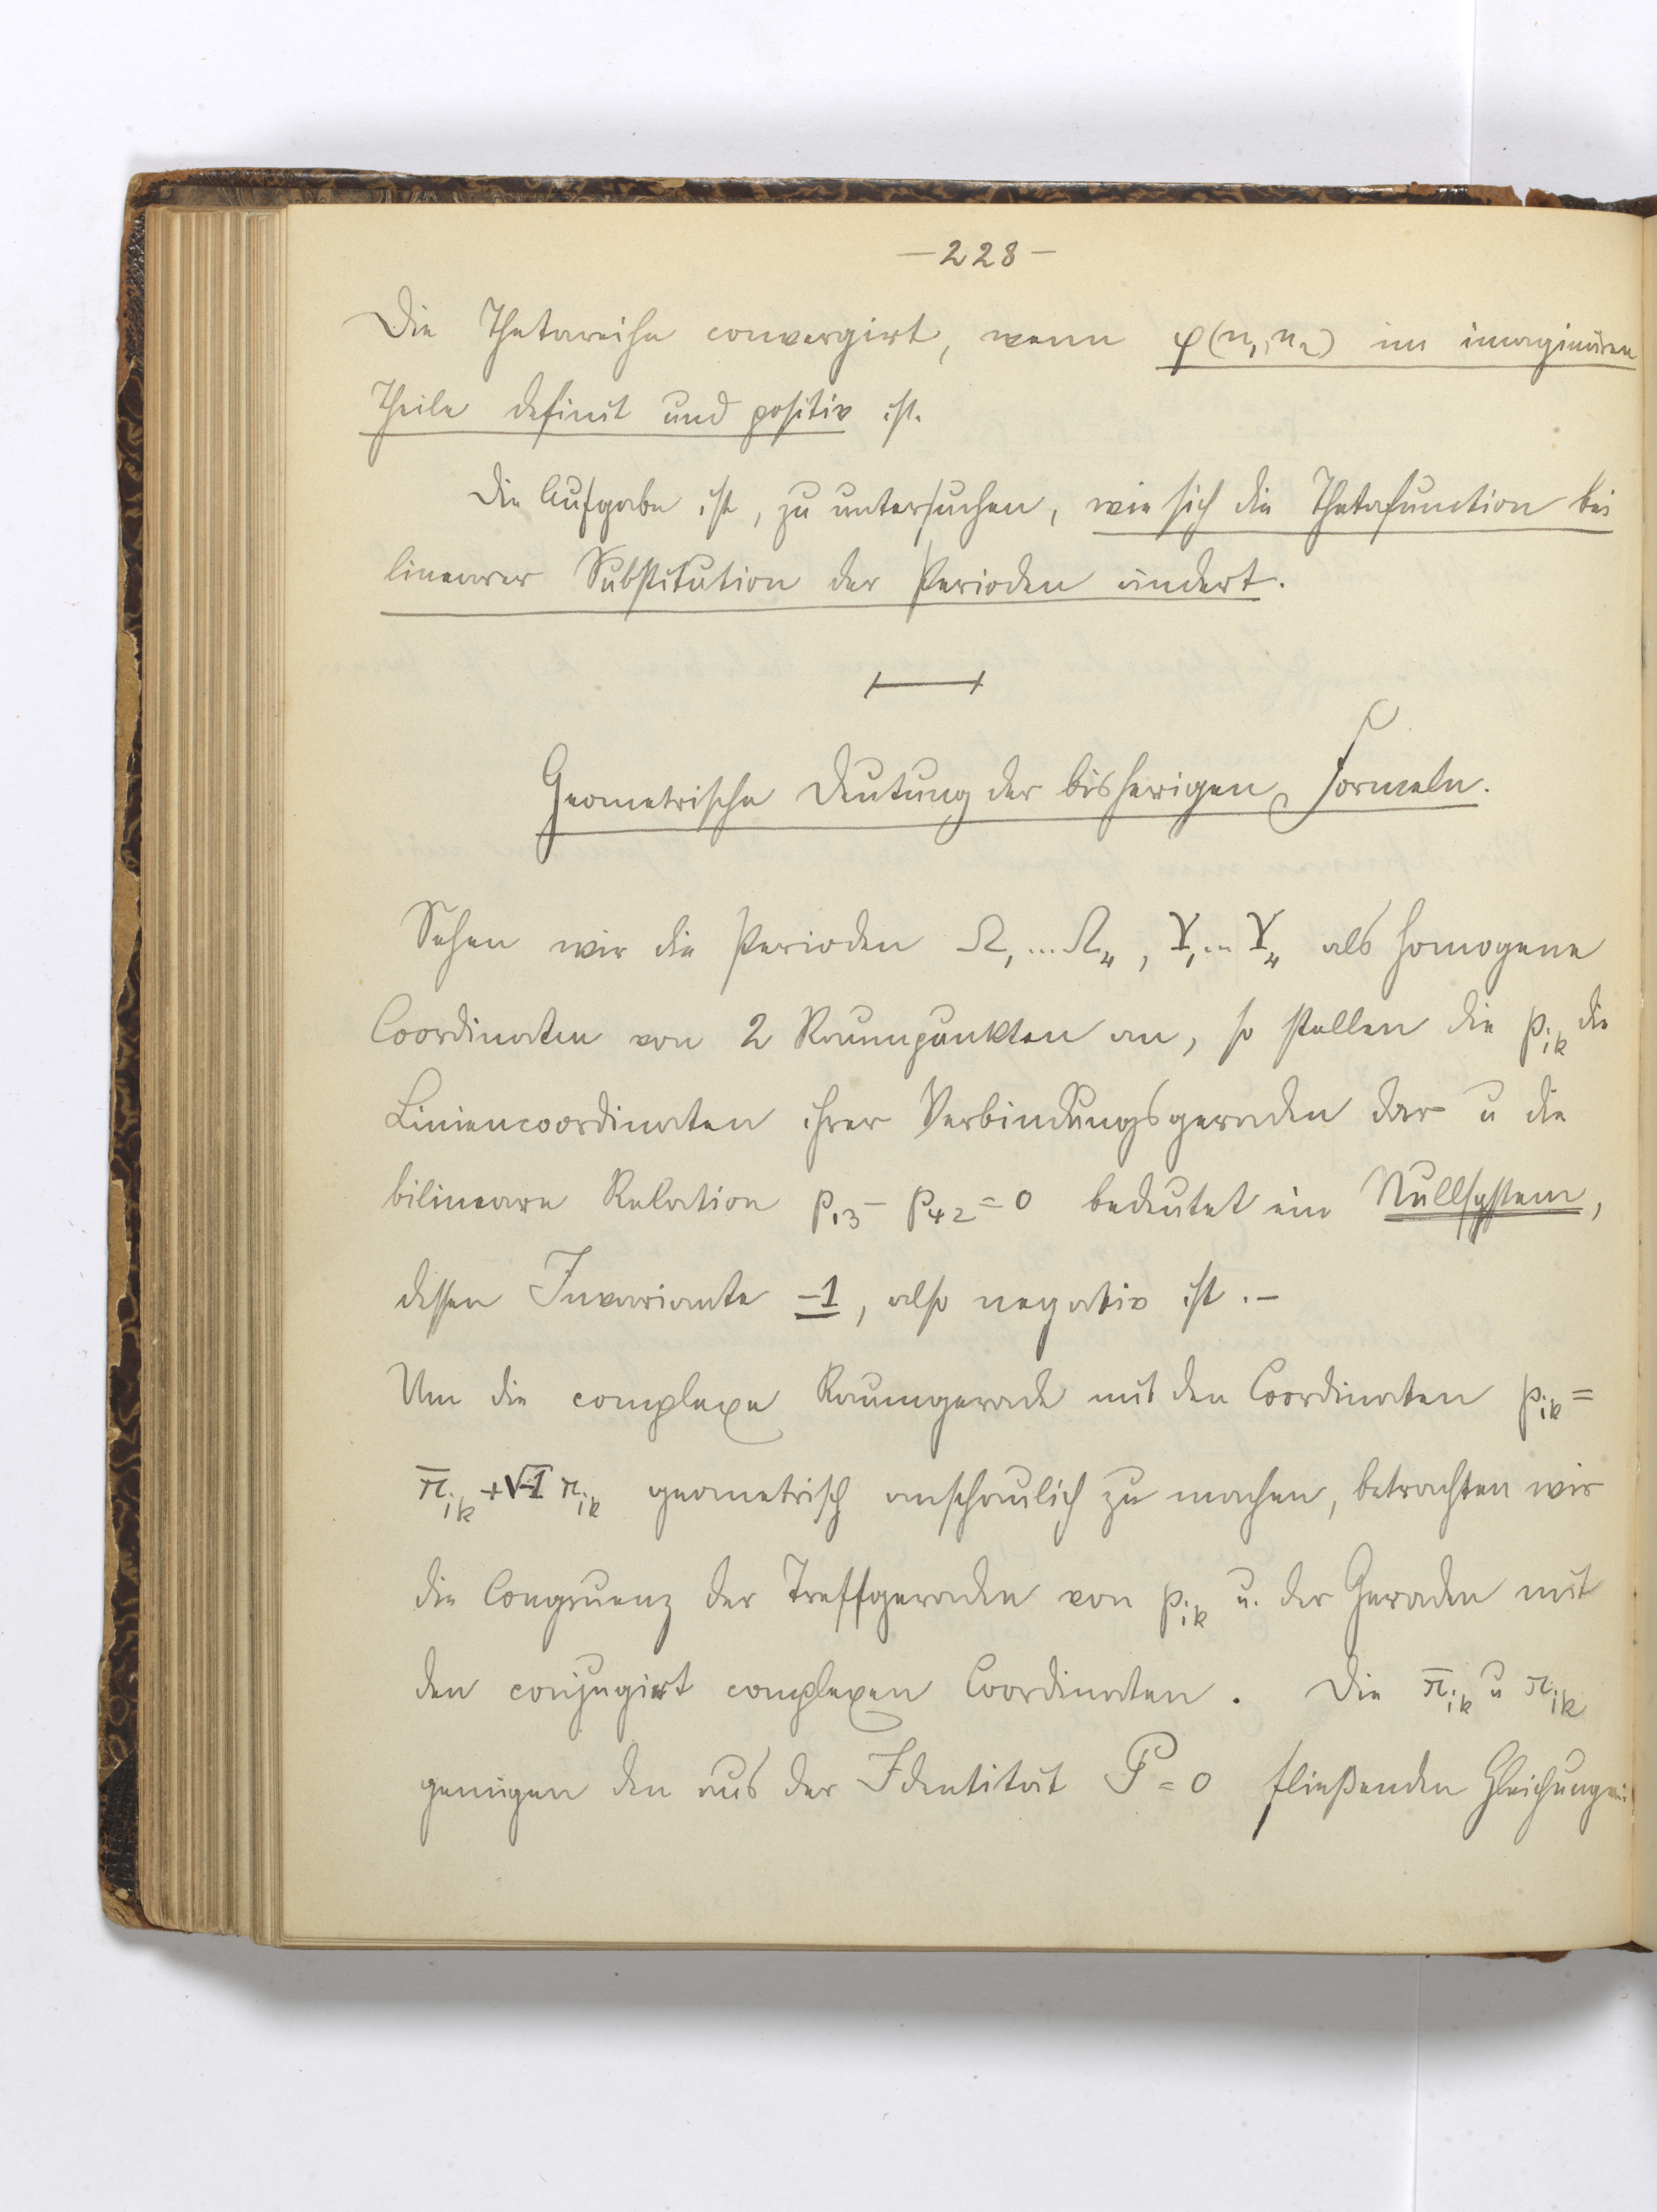 — 228 —
Die Thetareihe convergirt, wenn φ(n₁, n₂) im imaginären
Theile definit und positiv ist.
Die Aufgabe ist, zu untersuchen, wie sich die Thetafunction bei
linearer Substitution der Perioden ändert.
Geometrische Deutung der bisherigen Formeln.
Sehen wir die Perioden Ω₁ ... Ω₄, Υ₁ ... Υ₄ als homogene
Coordinaten von 2 Raumpunkten an, so stellen die p_ik die
Liniencoordinaten ihrer Verbindungsgeraden dar u die
bilineare Relation p₁₃ - p₄₂ = 0 bedeutet ein Nullsystem,
dessen Invariante -1, also negativ ist. -
Um die complexe Raumgerade mit den Coordinaten p_ik =
π̄_ik + √-1 π_ik geometrisch anschaulich zu machen, betrachten wir
die Congruenz der Treffgeraden von p_ik u. der Geraden mit
den conjugirt complexen Coordinaten. Die π̄_ik u π_ik
genügen den aus der Identität P = 0 fließenden Gleichungen